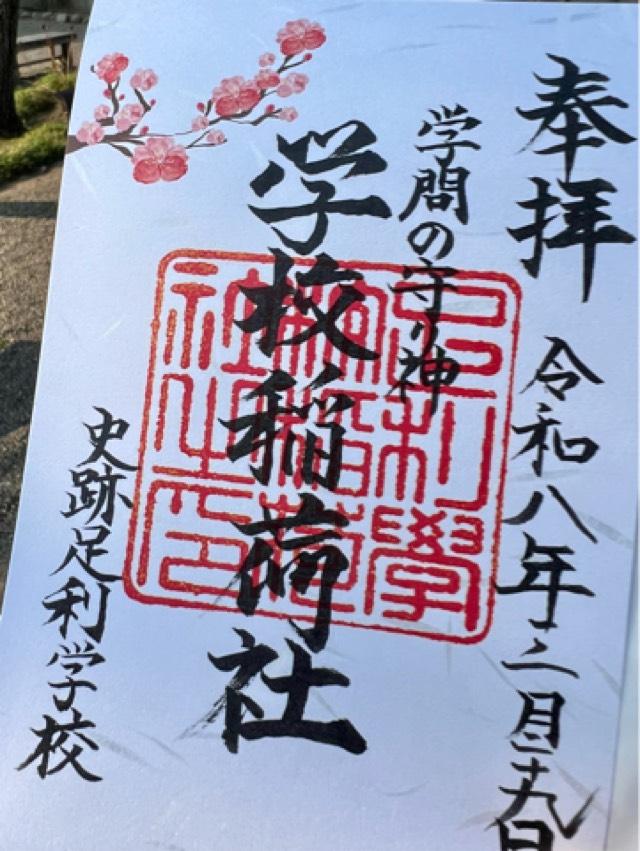 奉拝 令和八年三月二十九日
学問の守り神
学校稲荷社
史跡足利学校
足利學
校稲荷
社之印